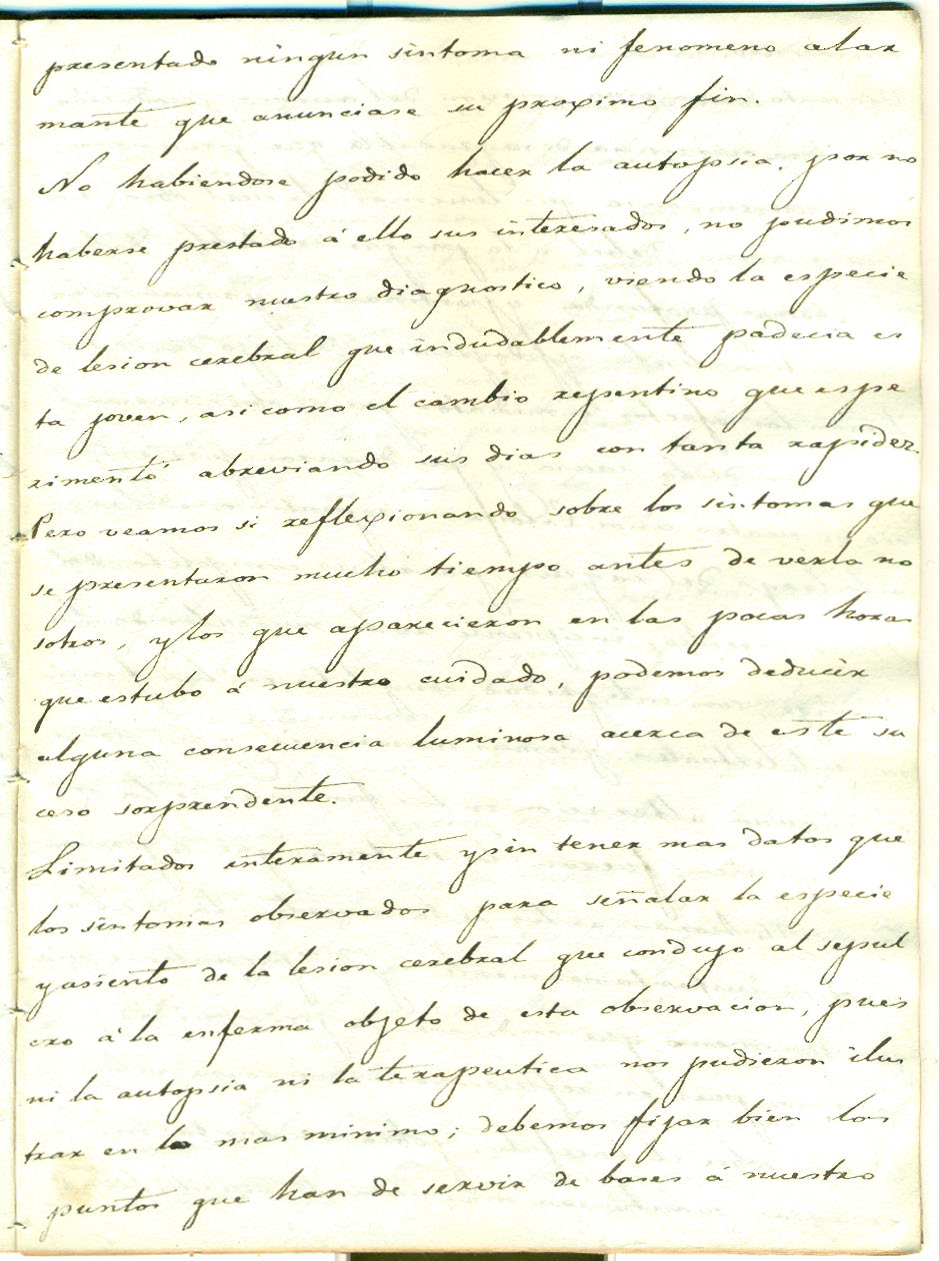 presentado ningun sintoma ni fenomeno alar
mante que anunciase su proximo fin.
No habiendose podido hacer la autopsia, por no
haberse prestado á ello sus interesados, no pudimos
comprovar nuestro diagnostico, viendo la especie
de lesion cerebral que indudablemente padecia es
ta joven, asi como el cambio repentino que espe
rimentó abreviando sus dias con tanta rapidez.
Pero veamos si reflexionando sobre los sintomas que
se presentaron mucho tiempo antes de verla no
sotros, y los que aparecieron en las pocas horas
que estubo á nuestro cuidado, podemos deducir
alguna consecuencia luminosa acerca de este su
ceso sorprendente.
Limitados interamente y sin tener mas datos que
los sintomas observados para señalar la especie
y asiento de la lesion cerebral que condujo al sepul
cro á la enferma objeto de esta observacion, pues
ni la autopsia ni la terapeutica nos pudieron ilus
trar en lo mas minimo; debemos fijar bien los
puntos que han de servir de bases á nuestro